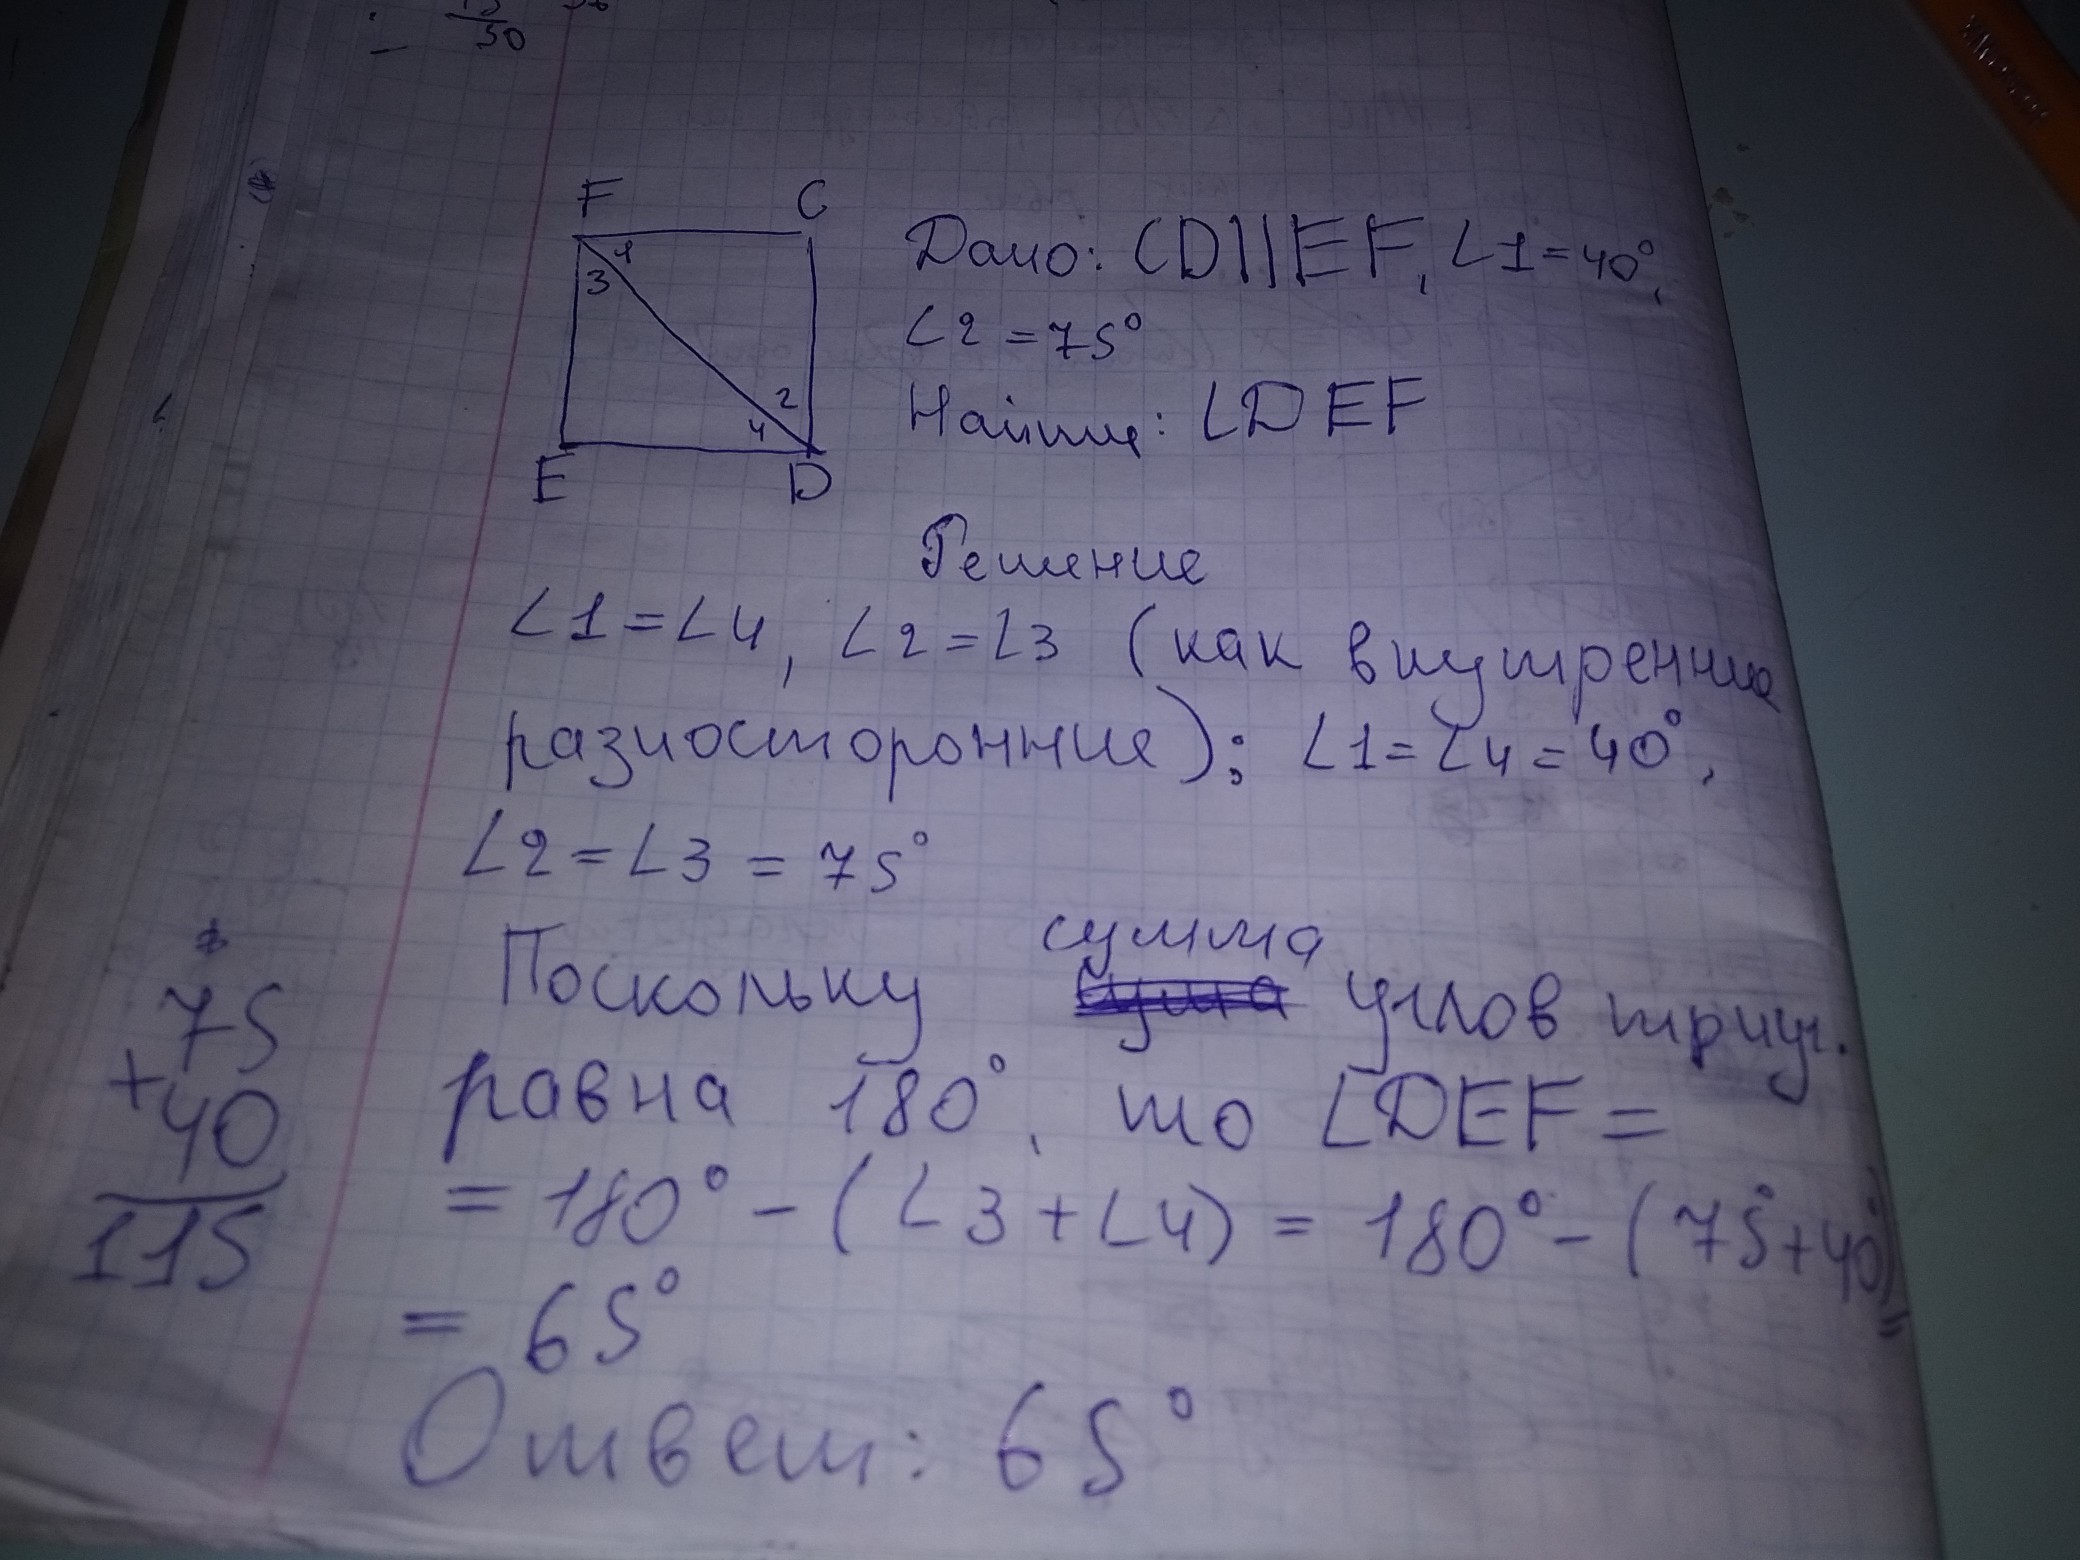 50
F C
1
3
2
4
E D
Дано: CD||EF, ∠1=40°,
∠2=75°
Найти: ∠DEF
Решение
∠1=∠4, ∠2=∠3 (как внутренние
разносторонние); ∠1=∠4=40°,
∠2=∠3=75°
Поскольку сумма углов триуг.
равна 180°, то ∠DEF=
=180°-(∠3+∠4)=180°-(75°+40°)=
=65°
Ответ: 65°
75
+40
115